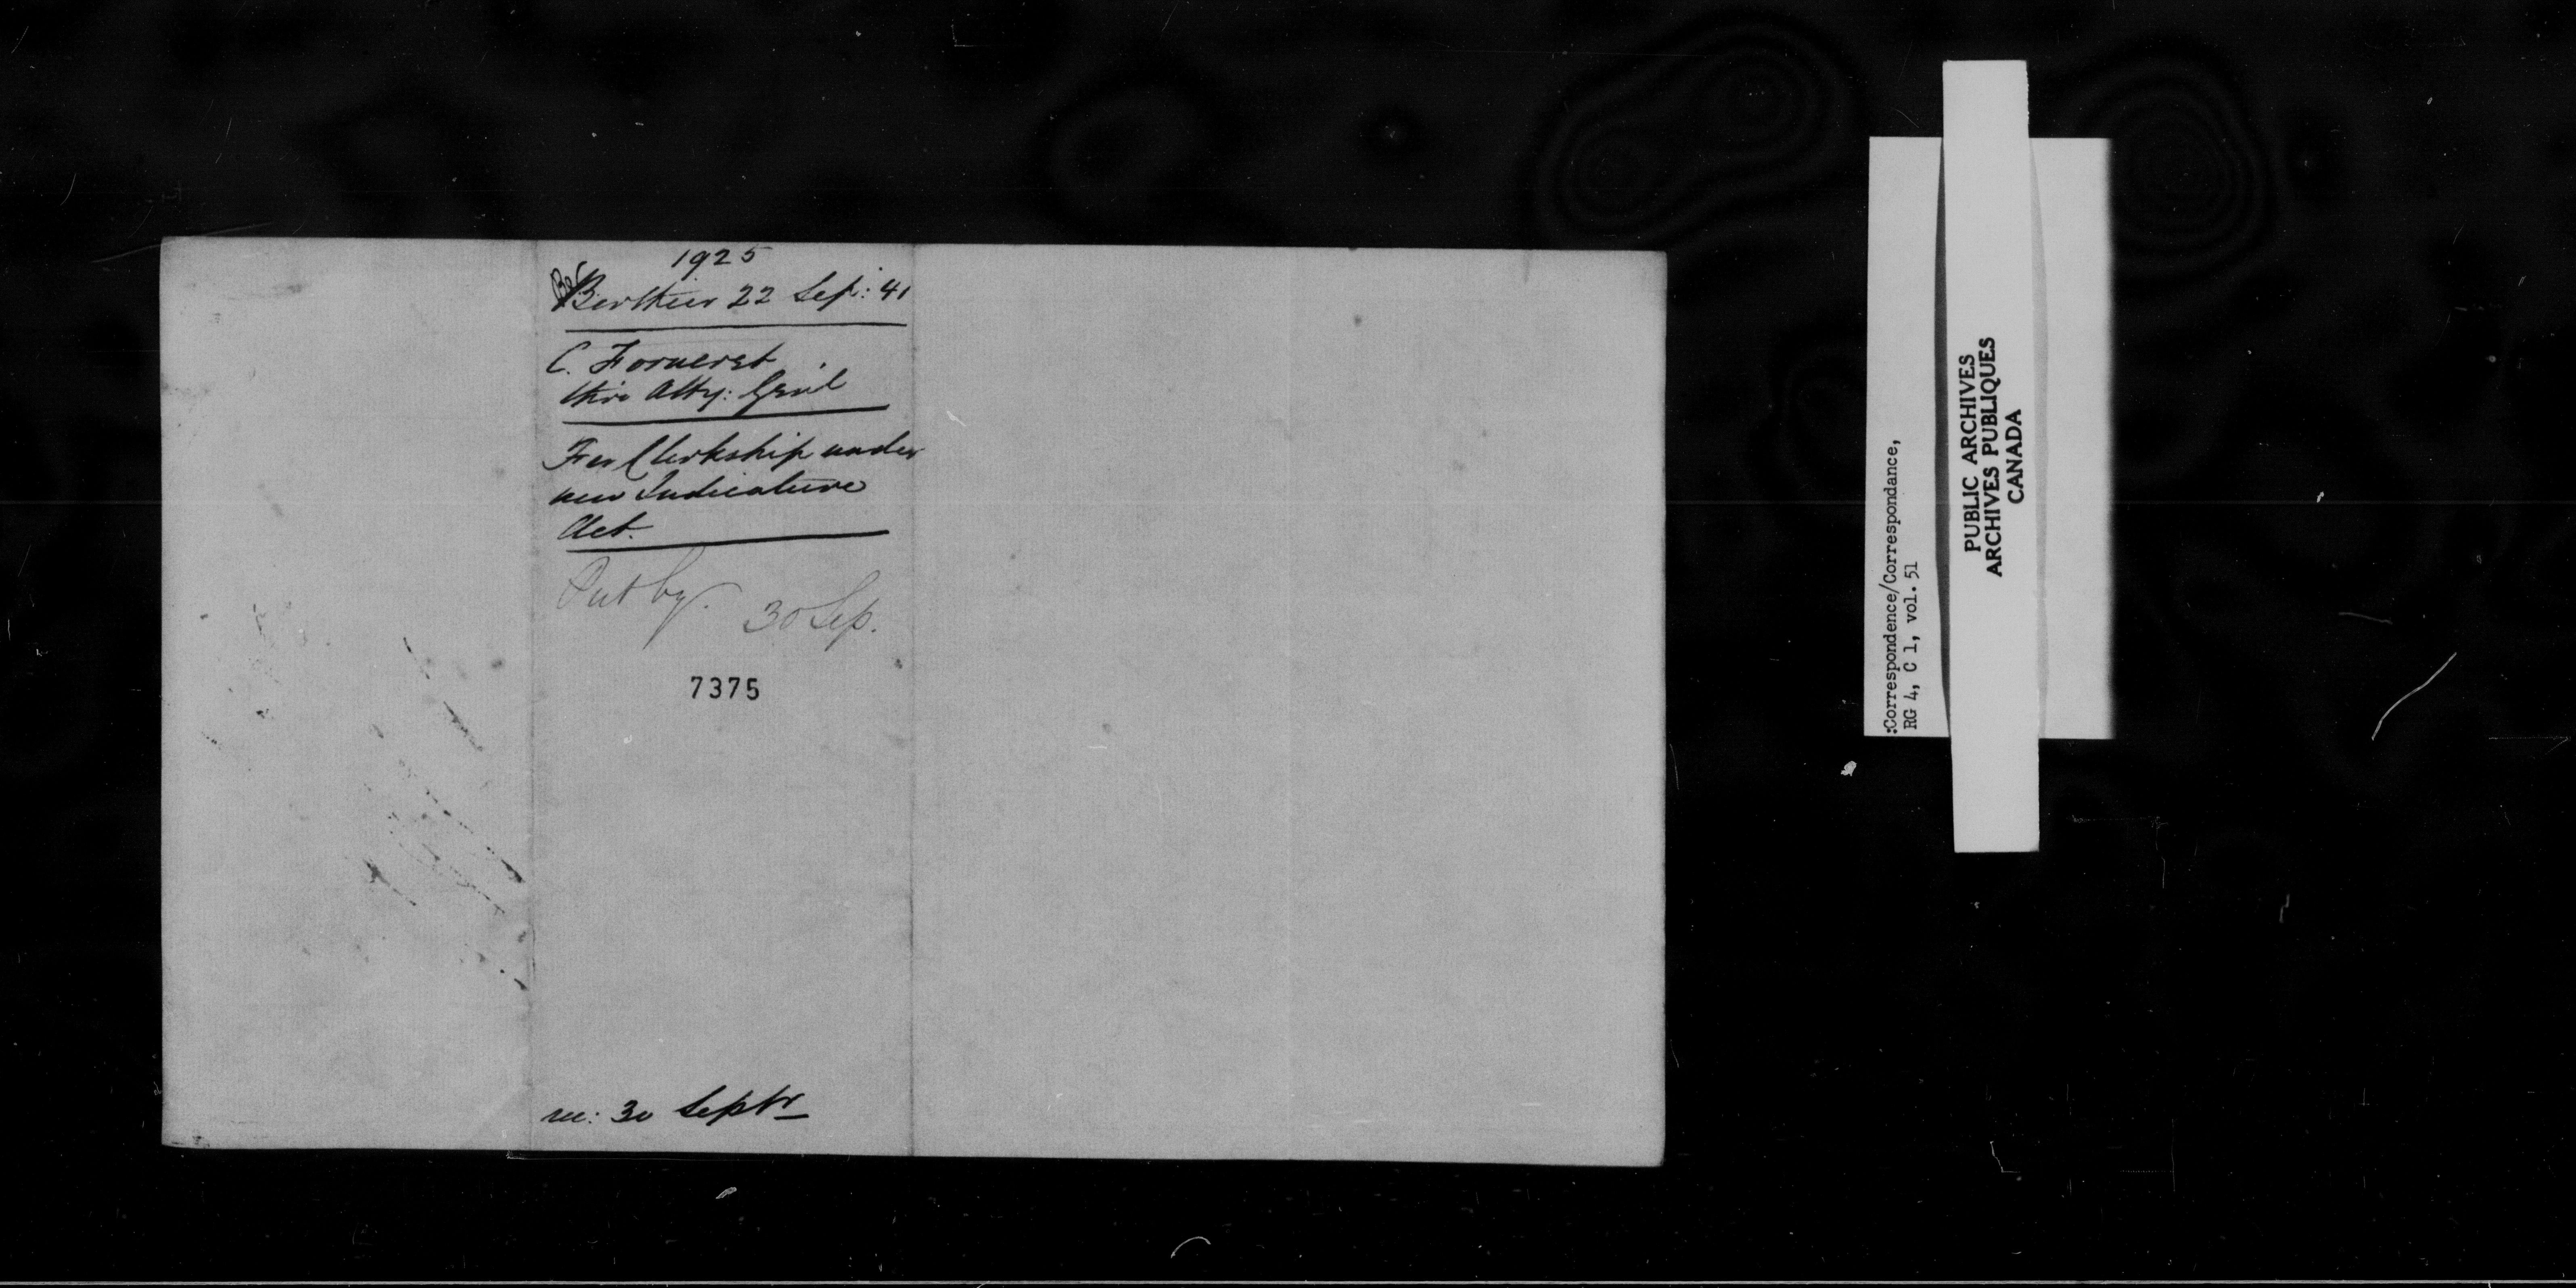 1925
Berthier 22 Sep: 41
C. Forneret
thro Atty: Genl
For Clerkship under
new Judicature
Act.
Put by. 30 Sep.
7375
rec: 30 Septr
:Correspondence/Correspondance,
RG 4, C 1, vol. 51
PUBLIC ARCHIVES
ARCHIVES PUBLIQUES
CANADA